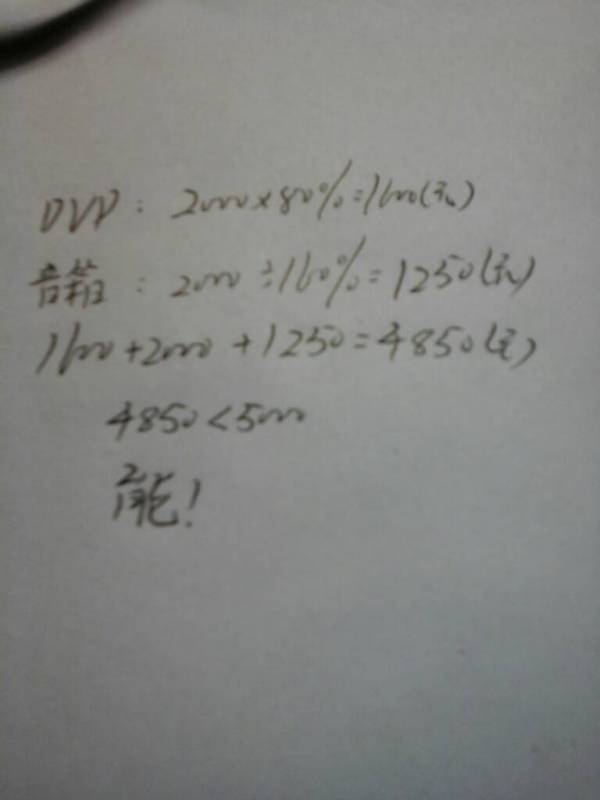 DVD：2000×80%=1600(元)
音箱：2000÷160%=1250(元)
1600+2000+1250=4850(元)
4850<5000
能！